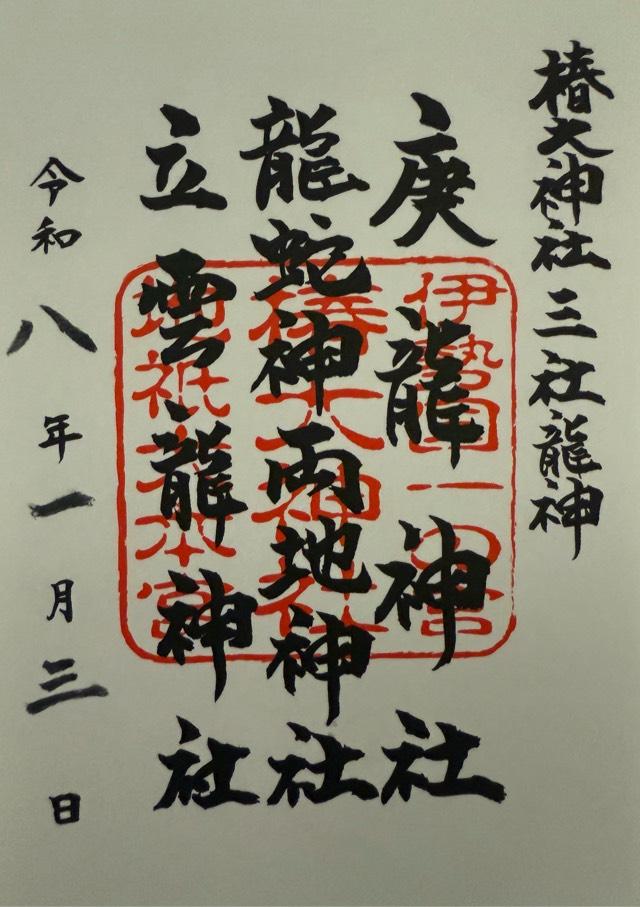 椿大神社三社龍神
庚龍神社
龍蛇神両地神社
立雲龍神社
令和八年一月三日
伊勢国一の宮
椿大神社
地祇大本宮